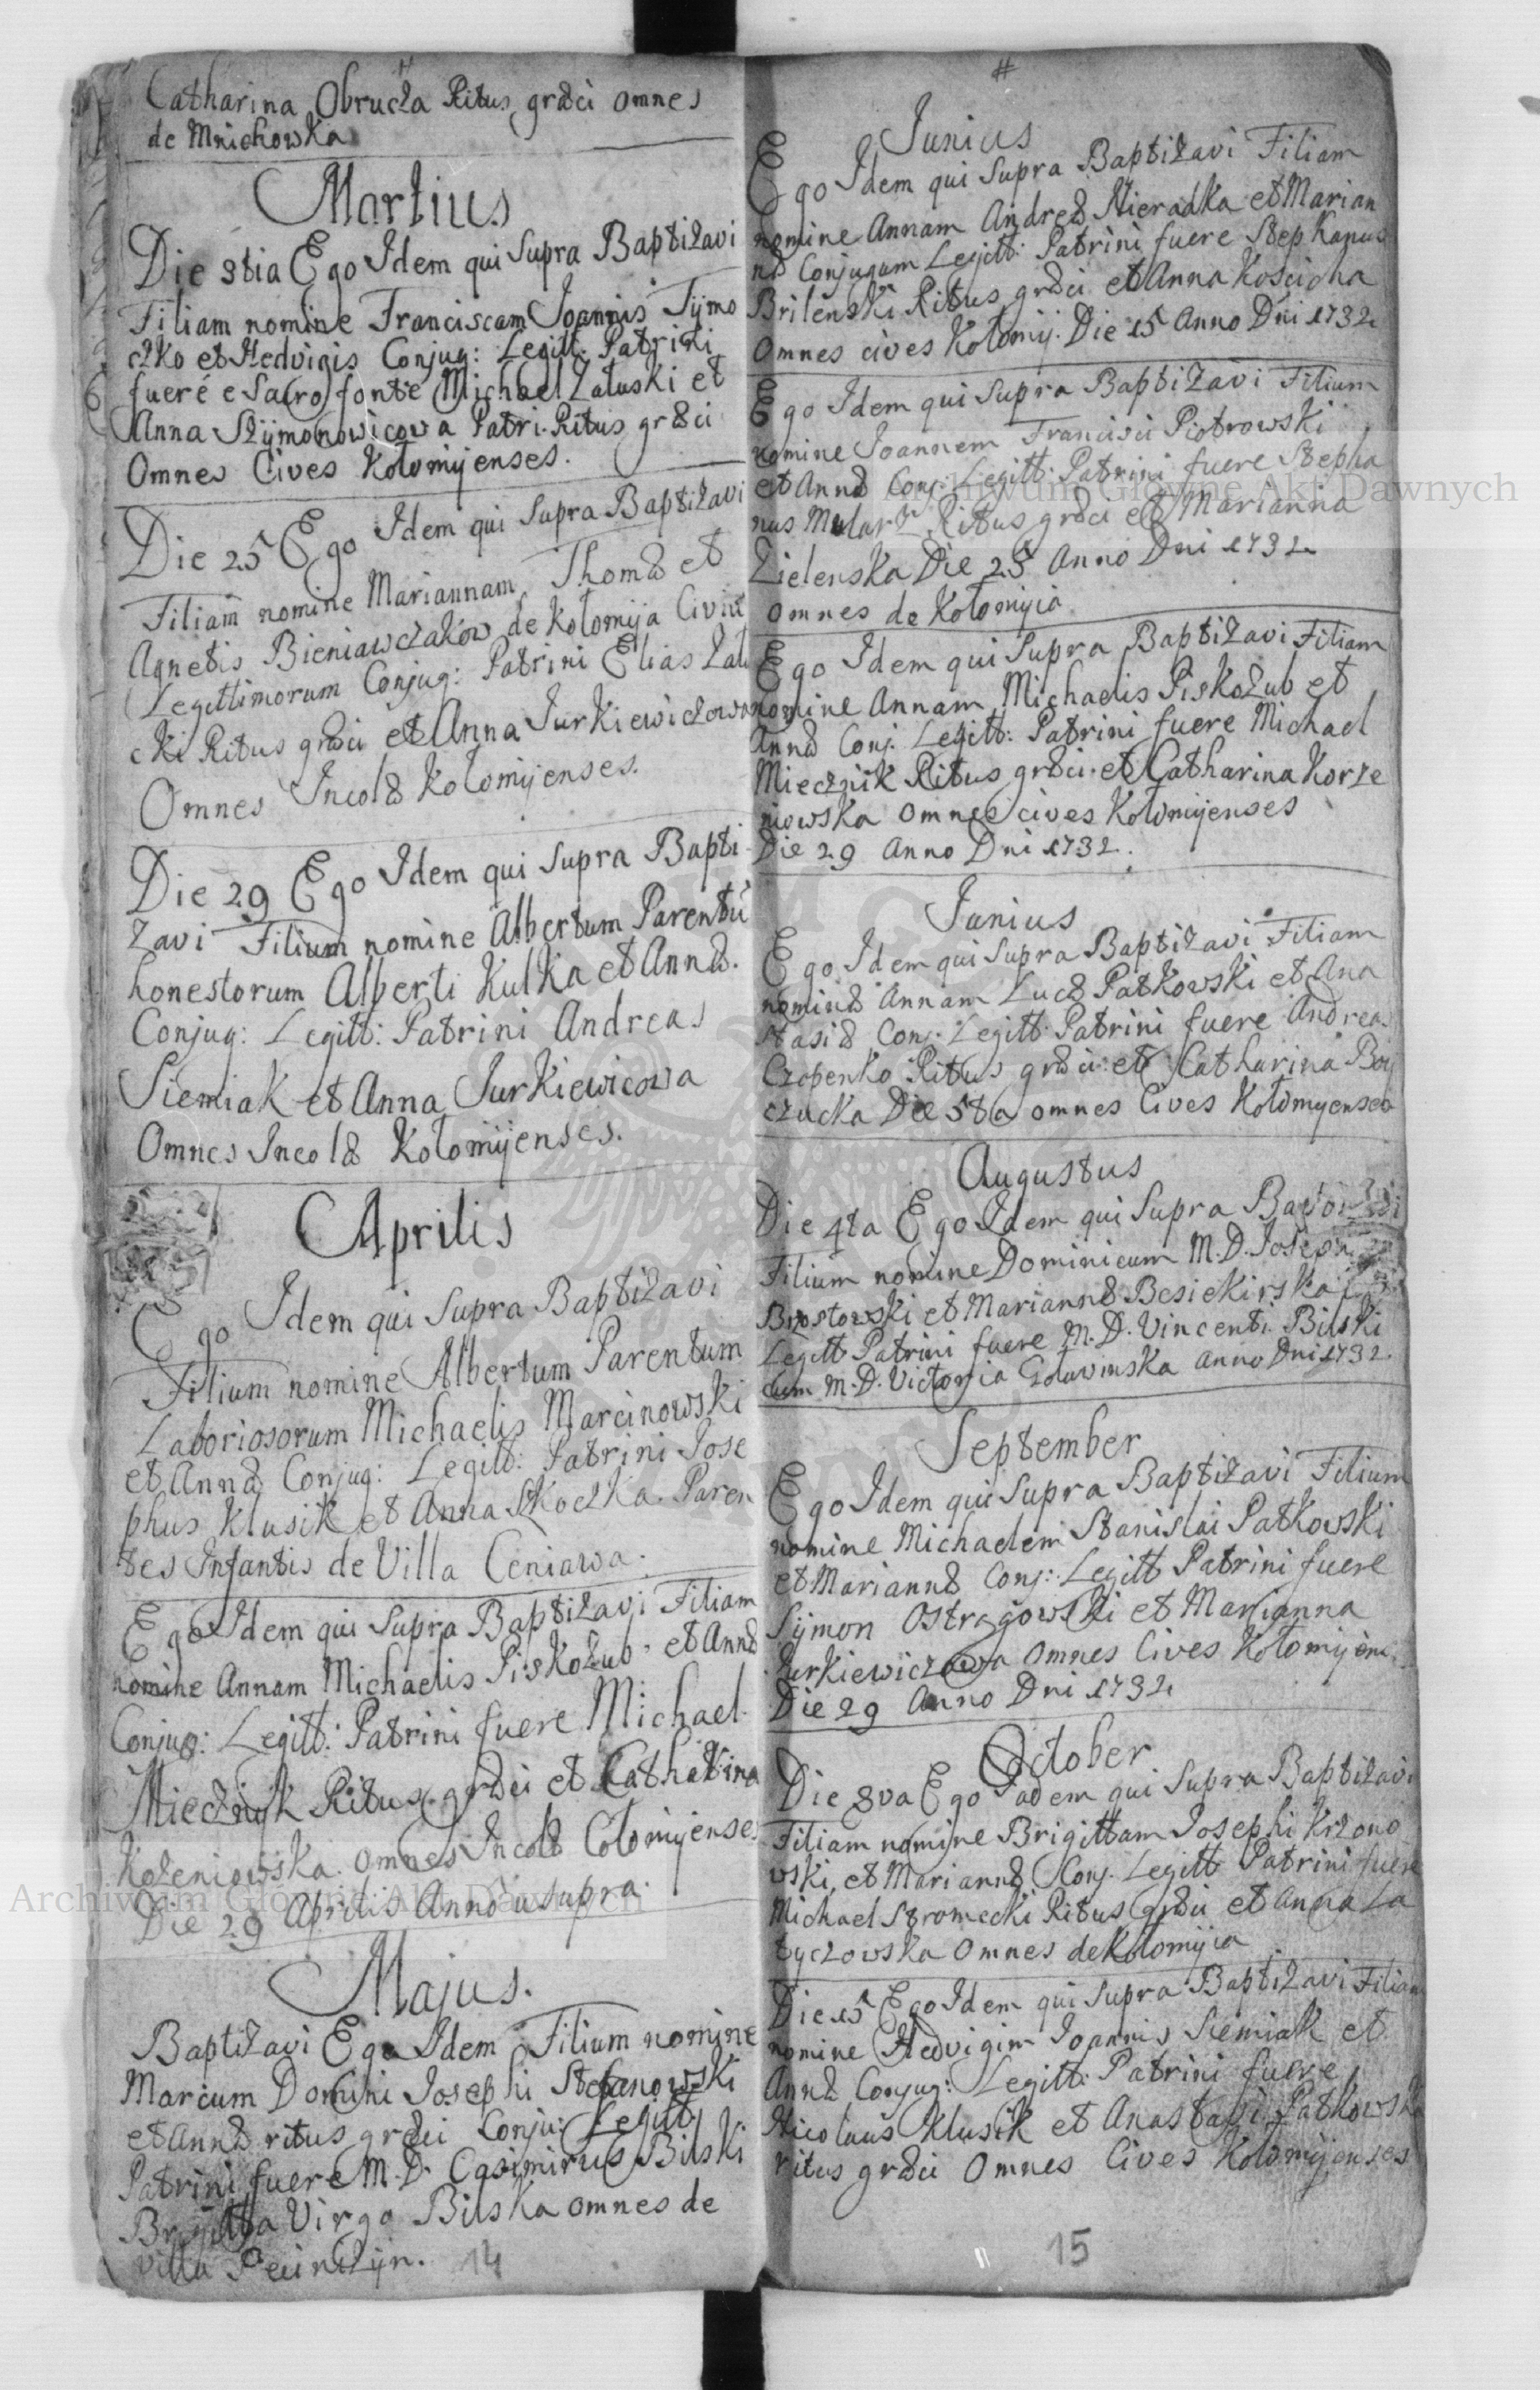 Catharina Obrucza Ritus græci omnes
de Mnichowka
Martius
Die 3tia Ego Idem qui supra Baptizavi
Filiam nomine Franciscam Joannis Tymo
czko et Hedvigis Conjug: Legitt: Patrini
fuere e Sacro fonte Michael Zaluski et
Anna Szymonowicowa Patri. Ritus græci
Omnes Cives Kolomyenses.
Die 25 Ego Idem qui supra Baptizavi
Filiam nomine Mariannam Thomæ et
Agnetis Bieniawczakow de Kolomija Civiu
Legittimorum Conjug: Patrini Elias Zalu
cki Ritus græci et Anna Jurkiewiczowa
Omnes Incolæ Kolomyenses.
Die 29 Ego Idem qui supra Bapti
zavi Filium nomine Albertum Parentū
honestorum Alberti Kulka et Annæ.
Conjug: Legitt: Patrini Andreas
Siemiak et Anna Jurkiewicowa
Omnes Incolæ Kolomijenses.
Aprilis
Ego Idem qui supra Baptizavi
Filium nomine Albertum Parentum
Laboriosorum Michaelis Marcinowski
et Annæ Conjug: Legitt: Patrini Jose
phus Klusik et Anna Skoczka. Paren
tes Infantis de Villa Ceniawa.
Ego Idem qui supra Baptizavi Filiam
nomine Annam Michaelis Piskozub et Annæ
Conjug: Legitt: Patrini fuere Michael
Miecznik Ritus græci et Catharina
Kozeniowska. omnes Incolæ Colomyenses
Die 29 Aprilis Anno usupra.
Majus.
Baptizavi Ego Idem Filium nomine
Marcum Domini Josephi Stefanowski
et Annæ ritus græci Conju: Legitt:
Patrini fuere M. D. Casimirus Bilski
Brygitta Virgo Bilska omnes de
villa
14
#
Junius
Ego Idem qui supra Baptizavi Filiam
nomine Annam Andreæ Nieradka et Marian
næ Conjugum Legitt: Patrini fuere Stephanus
Brilenski Ritus græci et Anna Koscioha
Omnes cives Kolomij. Die 15 Anno Dni 1732
Ego Idem qui supra Baptizavi Filium
nomine Joannem Francisci Piotrowski
et Annæ Conj: Legitt: Patrini fuere Stepha
nus Mularz Ritus græci et Marianna
Zielenska Die 25 Anno Dni 1732
omnes de Kolomyia
Ego Idem qui supra Baptizavi Filiam
nomine Annam Michaelis Piskozub et
Annæ Conj. Legitt: Patrini fuere Michael
Miecznik Ritus græci et Catharina Korze
niowska omnes cives Kolomyenses
Die 29 Anno Dni 1732.
Junius
Ego Idem qui supra Baptizavi Filiam
nominæ Annam Lucæ Patkowski et Ana
stasiæ Conj. Legitt: Patrini fuere Andreas
Czopenko Ritus græci et Catharina Boy
czucka Die 5ta omnes Cives Kolomyenses
Augustus
Die 4ta Ego Idem qui supra
Filium nomine Dominicum M. D. Joseph
Brzostowski et Mariannæ Besiekirska
Legitt Patrini fuere M. D. Vincenti Bilski
cum M. D. Victoria Anno Dni 1732
September
Ego Idem qui supra Baptizavi Filium
nomine Michaelem Stanislai Patkowski
et Mariannæ Conj: Legitt Patrini fuere
Symon Ostrogowski et Marianna
Jurkiewiczowa Omnes Cives Kolomyens.
Die 29 Anno Dni 1732
October
Die 8va Ego Iadem qui supra Baptizavi
Filiam nomine Brigittam Josephi Krzono
wski et Mariannæ Conj. Legitt Patrini fuere
Michael Stromecki Ritus græci et Anna La
tyczowska Omnes de Kolomyia
Die 15 Ego Idem qui supra Baptizavi Filiam
nomine Hedvigim Joannis Siemiak et
Annæ Conjug: Legitt: Patrini fuere
Nicolaus Klusik et Anastasi Patkowska
ritus græci Omnes Cives Kolomyenses
15
Archiwum Główne Akt Dawnych
Archiwum Główne Akt Dawnych